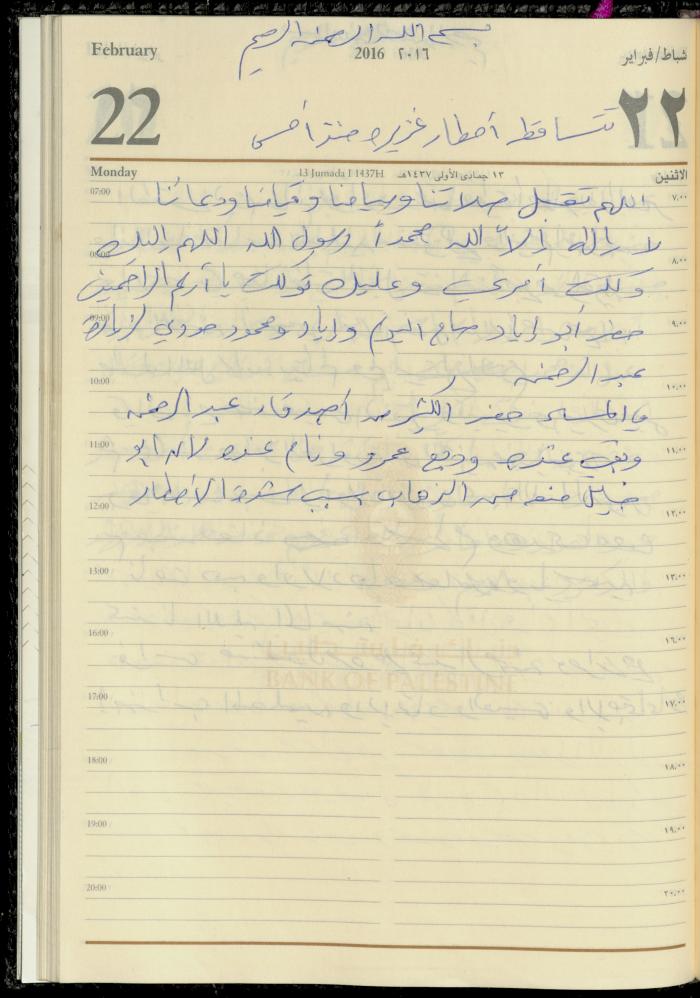 بسم الله الرحمن الرحيم
February 2016 ٢٠١٦ شباط/فبراير
22 ٢٢
تتساقط أمطار غزيره منذ أمس
Monday 13 Jumada I 1437H ١٣ جمادى الأولى ١٤٣٧هـ الاثنين
07:00 ٧,٠٠
اللهم تقبل صلاتنا وصيامنا وقيامنا ودعائنا
لا إله إلا الله محمداً رسول الله اللهم إليك
08:00 ٨,٠٠
وكلت أمري وعليك توكلت يا أرحم الراحمين
09:00 ٩,٠٠
حضر أبو إياد صباح اليوم وإياد ومحمود لزيارة
عبد الرحمن
10:00 ١٠,٠٠
في المساء حضر الكثير من أصدقاء عبد الرحمن
11:00 ١١,٠٠
وبقي عنده وديع عمرو ونام عنده لان ابو
12:00 ١٢,٠٠
منعه من الذهاب بسبب شدة الأمطار
13:00 ١٣,٠٠
16:00 ١٦,٠٠
BANK OF PALESTINE
17:00 ١٧,٠٠
18:00 ١٨,٠٠
19:00 ١٩,٠٠
20:00 ٢٠,٠٠